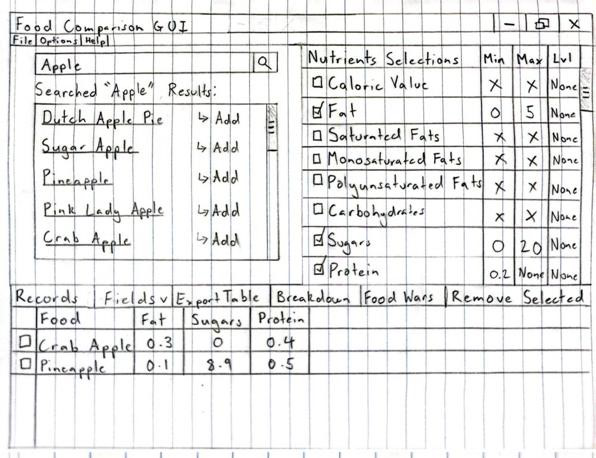 Food Comparison GUI
File Options Help
Apple
Searched "Apple" Results:
Dutch Apple Pie ↳ Add
Sugar Apple ↳ Add
Pineapple ↳ Add
Pink Lady Apple ↳ Add
Crab Apple ↳ Add
Nutrients Selections Min Max Lvl
Caloric Value X X None
Fat 0 5 None
Saturated Fats X X None
Monosaturated Fats X X None
Polyunsaturated Fats X X None
Carbohydrates X X None
Sugars 0 20 None
Protein 0.2 None None
Records Fields v Export Table Breakdown Food Wars Remove Selected
Food Fat Sugars Protein
Crab Apple 0.3 0 0.4
Pineapple 0.1 8.9 0.5